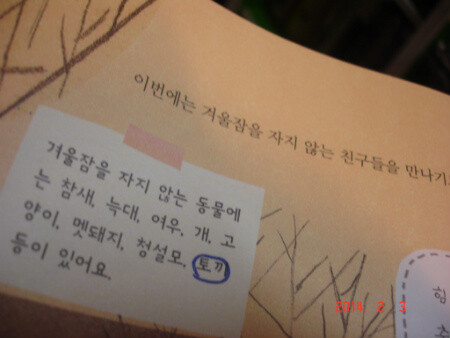 이번에는 겨울잠을 자지 않는 친구들을 만나기
겨울잠을 자지 않는 동물에
는 참새, 늑대, 여우, 개, 고
양이, 멧돼지, 청설모, 토끼
등이 있어요.
힝
2014 2 3